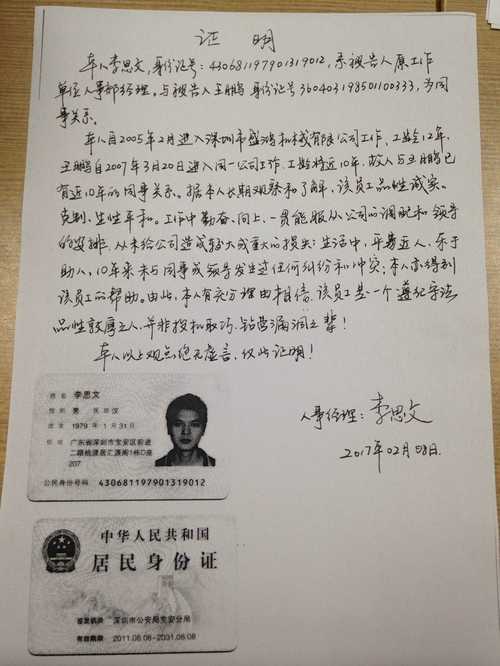 证明
本人李思文，身份证号：430681197901319012，系被告人原工作
单位人事部经理。与被告人王鹏 身份证号360403198501100333，为同
事关系。
本人自2005年2月进入深圳市盛鸿机械有限公司工作，工龄12年，
王鹏自2007年3月20日进入同一公司工作，工龄将近10年，故人与王鹏已
有近10年的同事关系。据本人长期观察和了解，该员工品性诚实、
克制、生性平和。工作中勤奋、向上，一贯能服从公司的调配和领导
的安排，从未给公司造成较大或重大的损失；生活中，平易近人，乐于
助人，10年来未与同事或领导发生过任何纠纷和冲突；本人亦得到
该员工的帮助。由此，本人有充分理由相信，该员工是一个遵纪守法
品性敦厚之人，并非投机取巧，钻营漏洞之辈！
本人以上观点，绝无虚言，仅此证明！
人事经理：李思文
2017年02月08日.
姓名 李思文
性别 男 民族 汉
出生 1979年1月31日
住址 广东省深圳市宝安区前进
二路桃源居汇源阁1栋D座
207
公民身份号码 430681197901319012
中华人民共和国
居民身份证
签发机关 深圳市公安局宝安分局
有效期限 2011.08.08-2031.08.08